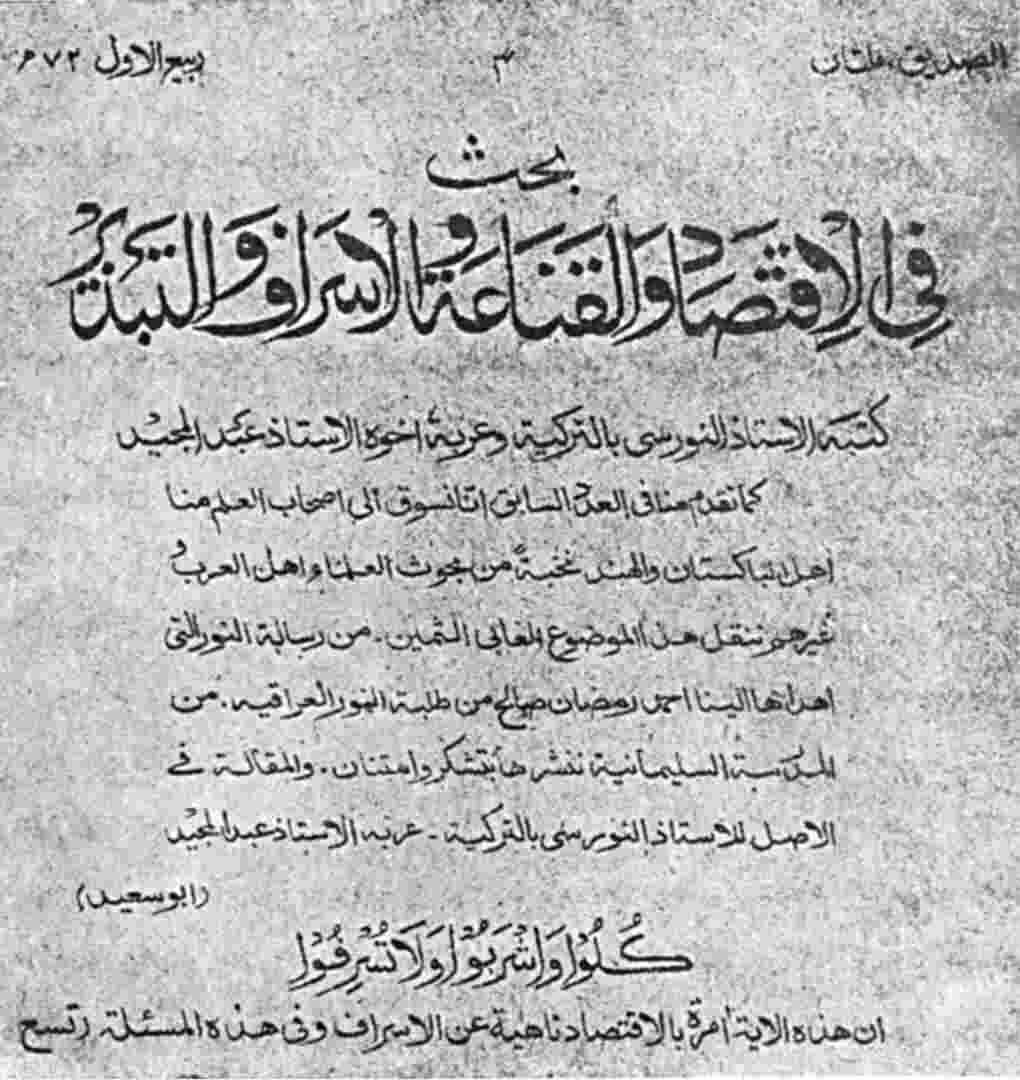 الصديق، ملتان ٣ ربيع الاول ٧٢ھ
بحث
فِي الْاِقتِصَادِ وَالقَنَاعَةِ وَالْاسرَافِ وَالتَبْذِيْرِ
كتبه الاستاذ النورسى بالتركية وعربه اخوه الاستاذ عبد المجيد
كما تقدم منا فى العدد السابق اننا نسوق الى اصحاب العلم منا
اهل الباكستان والهند نخبةً من بحوث العلماء اهل العرب و
غيرهم ننقل هذا الموضوع المعانى الثمين۔ من رسالة النور التى
اهداها الينا احمد رمضان صالح من طلبة النور العراقيه۔ من
المدرسة السليمانية ننشرها بتشكر وامتنان۔ والمقالة فى
الاصل للاستاذ النورسى بالتركية۔ عربه الاستاذ عبد المجيد
(ابوسعيد)
كُلُوْا وَاشْرَبُوْا وَلَا تُسْرِفُوْا
ان هذه الاية أمرة بالاقتصاد ناهية عن الاسراف وفى هذه المسئلة تسع